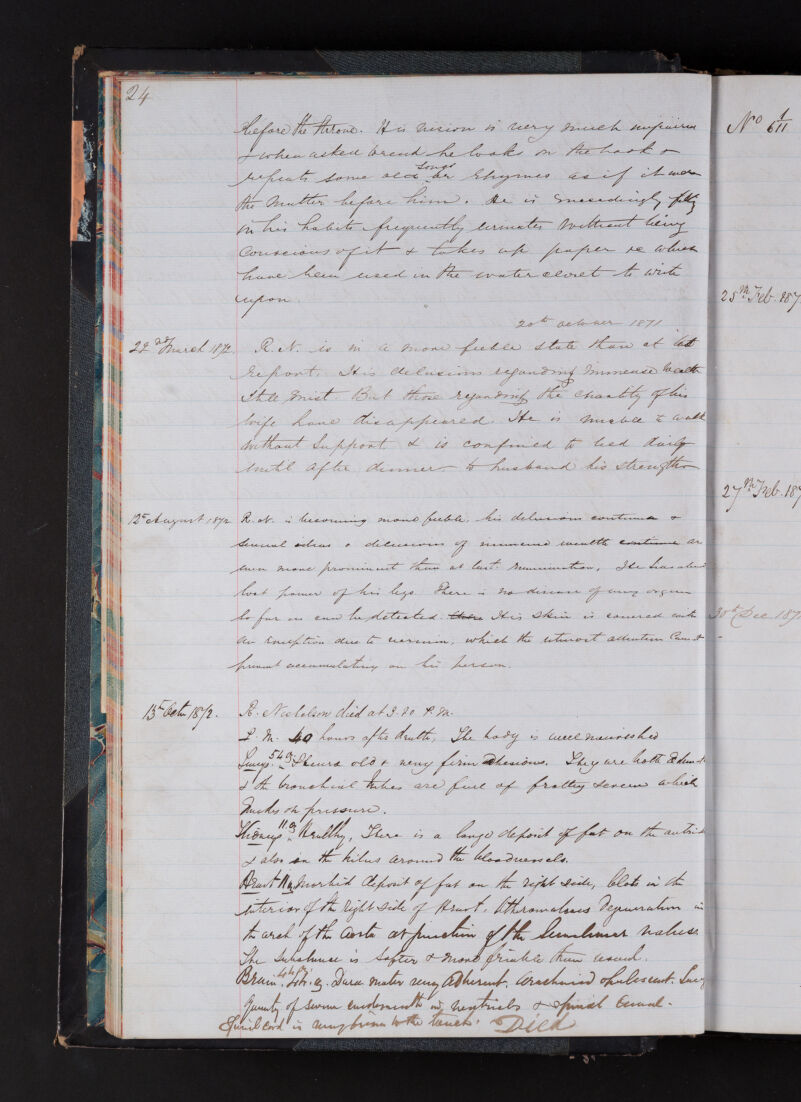 24
before the throne. His vision is very much impaired
& when asked to read he looks on the book &
repeats some old songs or rhymes as if it were
the matter before him. He is exceedingly filthy
in his habits frequently urinates without being
conscious of it & takes up paper &c which
have been used in the water closet to write
upon.
20th October 1871
22nd March 1872. R. N. is in a more feeble state than at last
report. His delusions regarding immense wealth
still exist. But those regarding the chastity of his
wife have disappeared. He is unable to walk
without support & is confined to bed daily
until after dinner to husband his strength
12th August 1872 R. N. is becoming more feeble, his delusions continue &
several ideas & delusions of immense wealth continue are
even more prominent than at last examination. He has also
lost power of his legs. There is no disease of any organ
so far as can be detected. His skin is covered with
an eruption due to vermin, which the utmost attention cannot
prevent accumulating on his person.
13th Octr 1872. R. Nicholson died at P.M.
P. M. 40 hours after death. The body is well nourished
Lungs 54 oz. Pleura old & very firm adhesions. They are both
& the bronchial tubes are full of frothy serum which
exudes on pressure.
Kidneys 11 oz Healthy. There is a large deposit of fat on the outside
& also in the hilus around the bloodvessels.
Heart Morbid deposit of fat on the right side, Clots in the
interior of the right side of Heart. Atheromatous Degeneration in
the arch of the aorta at junction of the Semilunar valves.
The substance is softer & more friable than usual.
Brain Dura mater very adherent. Arachnoid opalescent. Large
quantity of serum in ventricles & spinal canal.
Spinal cord is very firm to the touch. Died
No 1/611
25th Feb. 187
27th Feb. 187
30th Dec. 187